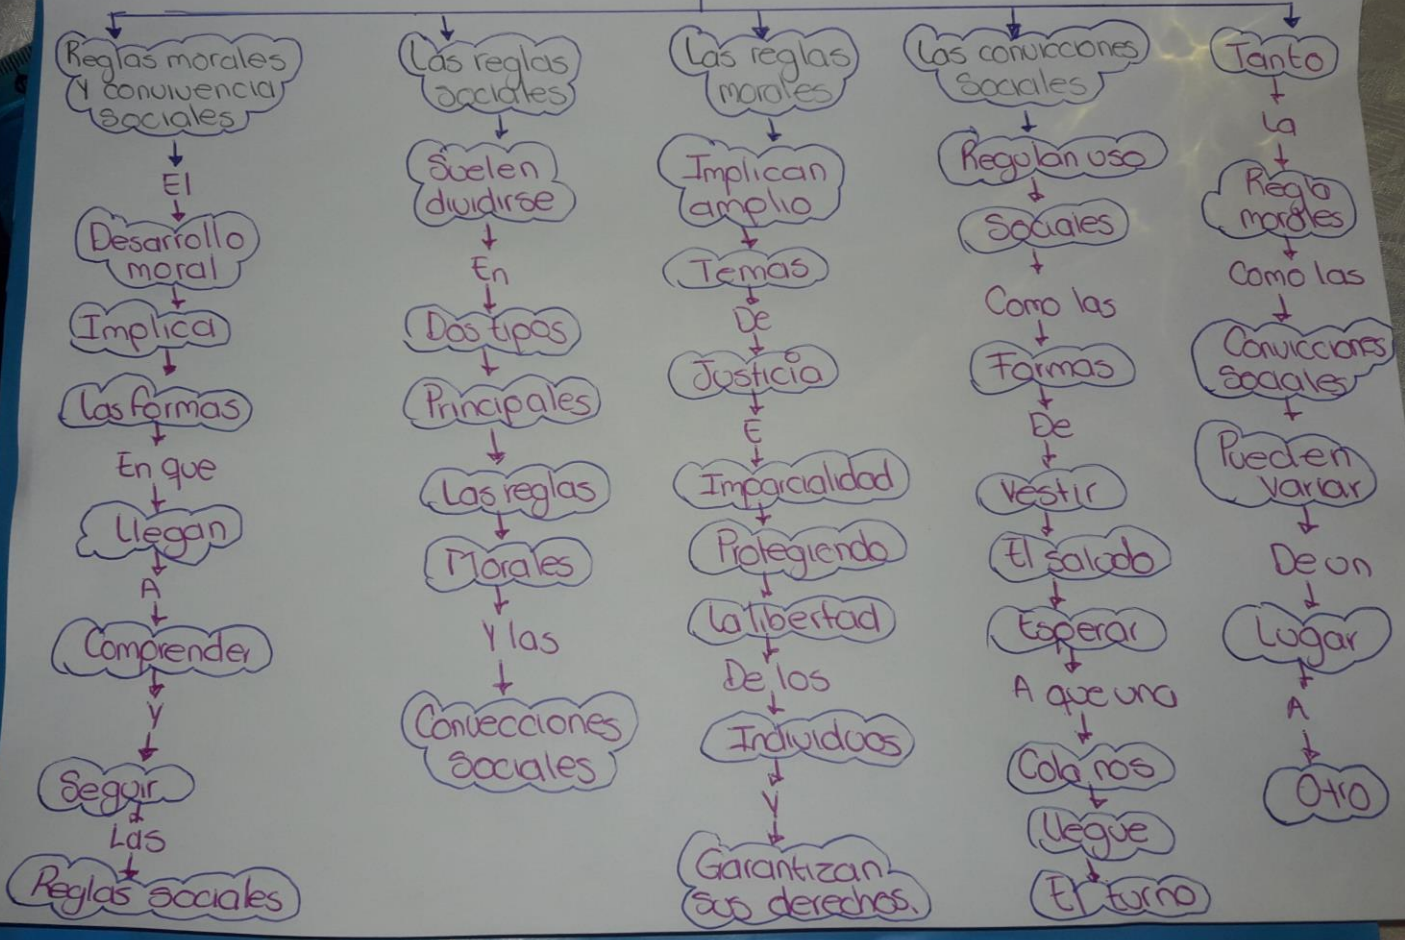 Reglas morales
y convivencia
sociales
El
Desarrollo
moral
Implica
Las formas
En que
llegan
A
Comprender
Y
Seguir
Las
Reglas sociales
Las reglas
sociales
Suelen
dividirse
En
Dos tipos
Principales
Las reglas
Morales
Y las
Convecciones
Sociales
Las reglas
morales
Implican
amplio
Temas
De
Justicia
E
Imparcialidad
Protegiendo
La libertad
De los
Individuos
Y
Garantizan
sus derechos.
Las convicciones
Sociales
Regulan uso
Sociales
Como las
Formas
De
Vestir
El saludo
Esperar
A que una
Cola nos
llegue
El turno
Tanto
La
Regla
morales
Como las
Convicciones
Sociales
Pueden
variar
De un
Lugar
A
Otro